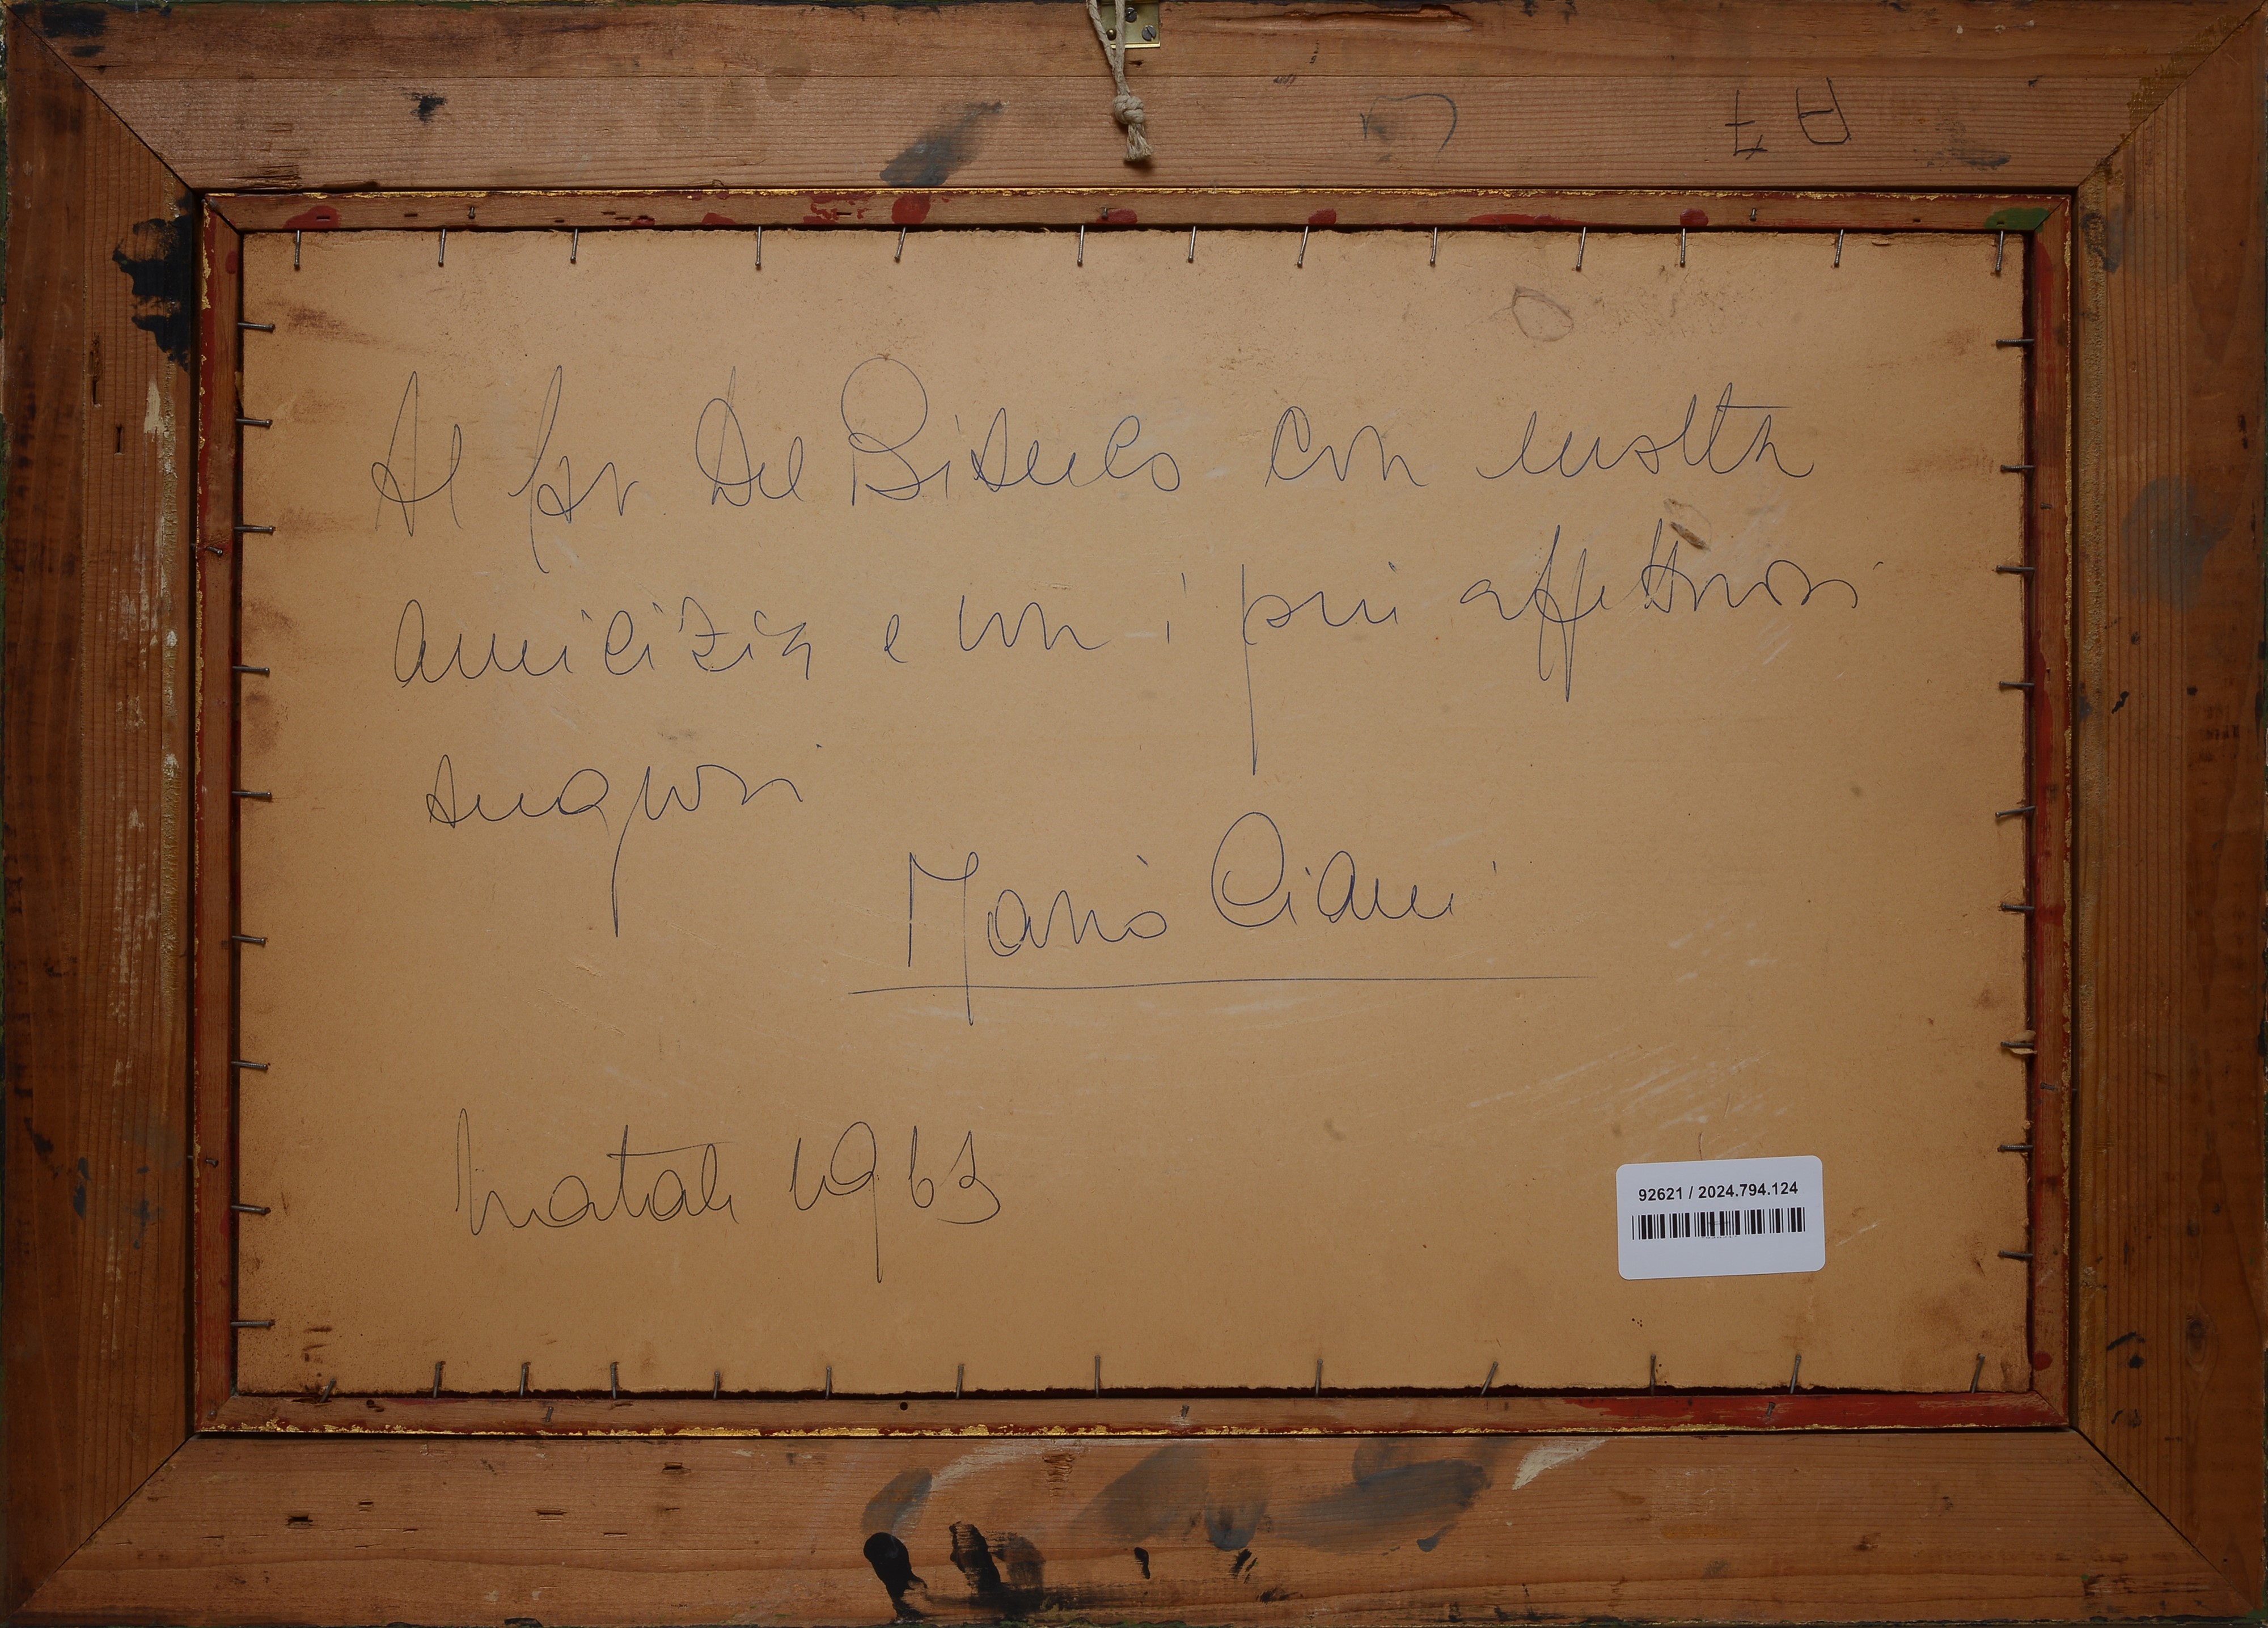 Al Sgr Del Bimbo con molta
amicizia e con i più affettuosi
auguri
Mario Ciani
Natale 1963
92621 / 2024.794.124